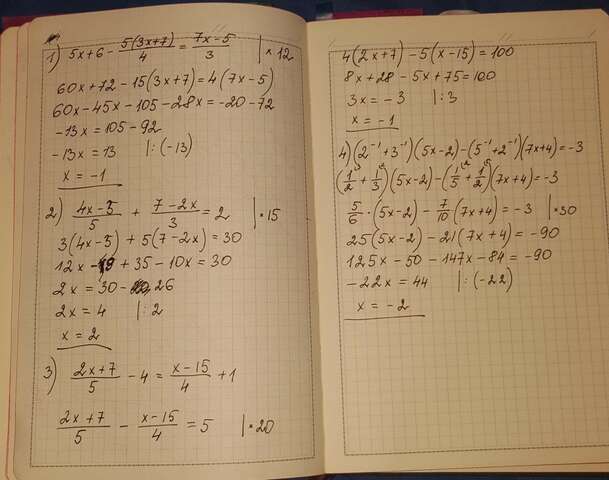 1) 5x+6 - 5(3x+7)/4 = 7x-5/3 | × 12
60x+72-15(3x+7)=4(7x-5)
60x-45x-105-28x=-20-72
-13x=105-92
-13x=13 |:(-13)
x=-1
2) 4x-3/5 + 7-2x/3 = 2 | • 15
3(4x-3)+5(7-2x)=30
12x-9+35-10x=30
2x=30-26
2x=4 |:2
x=2
3) 2x+7/5 - 4 = x-15/4 + 1
2x+7/5 - x-15/4 = 5 | • 20
4(2x+7)-5(x-15)=100
8x+28-5x+75=100
3x=-3 |:3
x=-1
4) (2⁻¹+3⁻¹)(5x-2)-(5⁻¹+2⁻¹)(7x+4)=-3
(1/2+1/3)(5x-2)-(1/5+1/2)(7x+4)=-3
5/6 • (5x-2) - 7/10(7x+4)=-3 | • 30
25(5x-2)-21(7x+4)=-90
125x-50-147x-84=-90
-22x=44 |:(-22)
x=-2